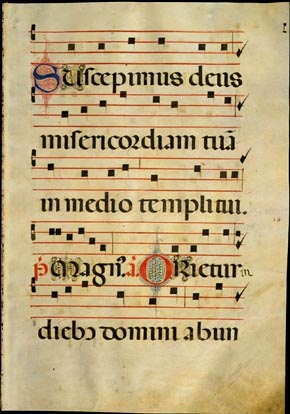 Suscepimus deus
misericordiam tuā
in medio templi tui.
p̄ Magn̄. ā ORietur in
dieb᷒ domini abun